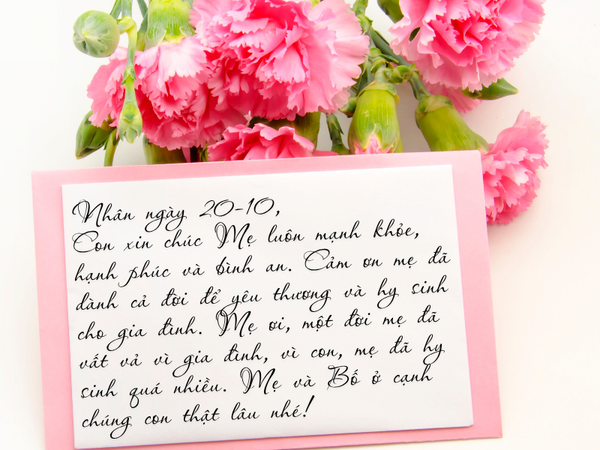 Nhân ngày 20-10,
Con xin chúc Mẹ luôn mạnh khỏe,
hạnh phúc và bình an. Cảm ơn mẹ đã
dành cả đời để yêu thương và hy sinh
cho gia đình. Mẹ ơi, một đời mẹ đã
vất vả vì gia đình, vì con, mẹ đã hy
sinh quá nhiều. Mẹ và Bố ở cạnh
chúng con thật lâu nhé!